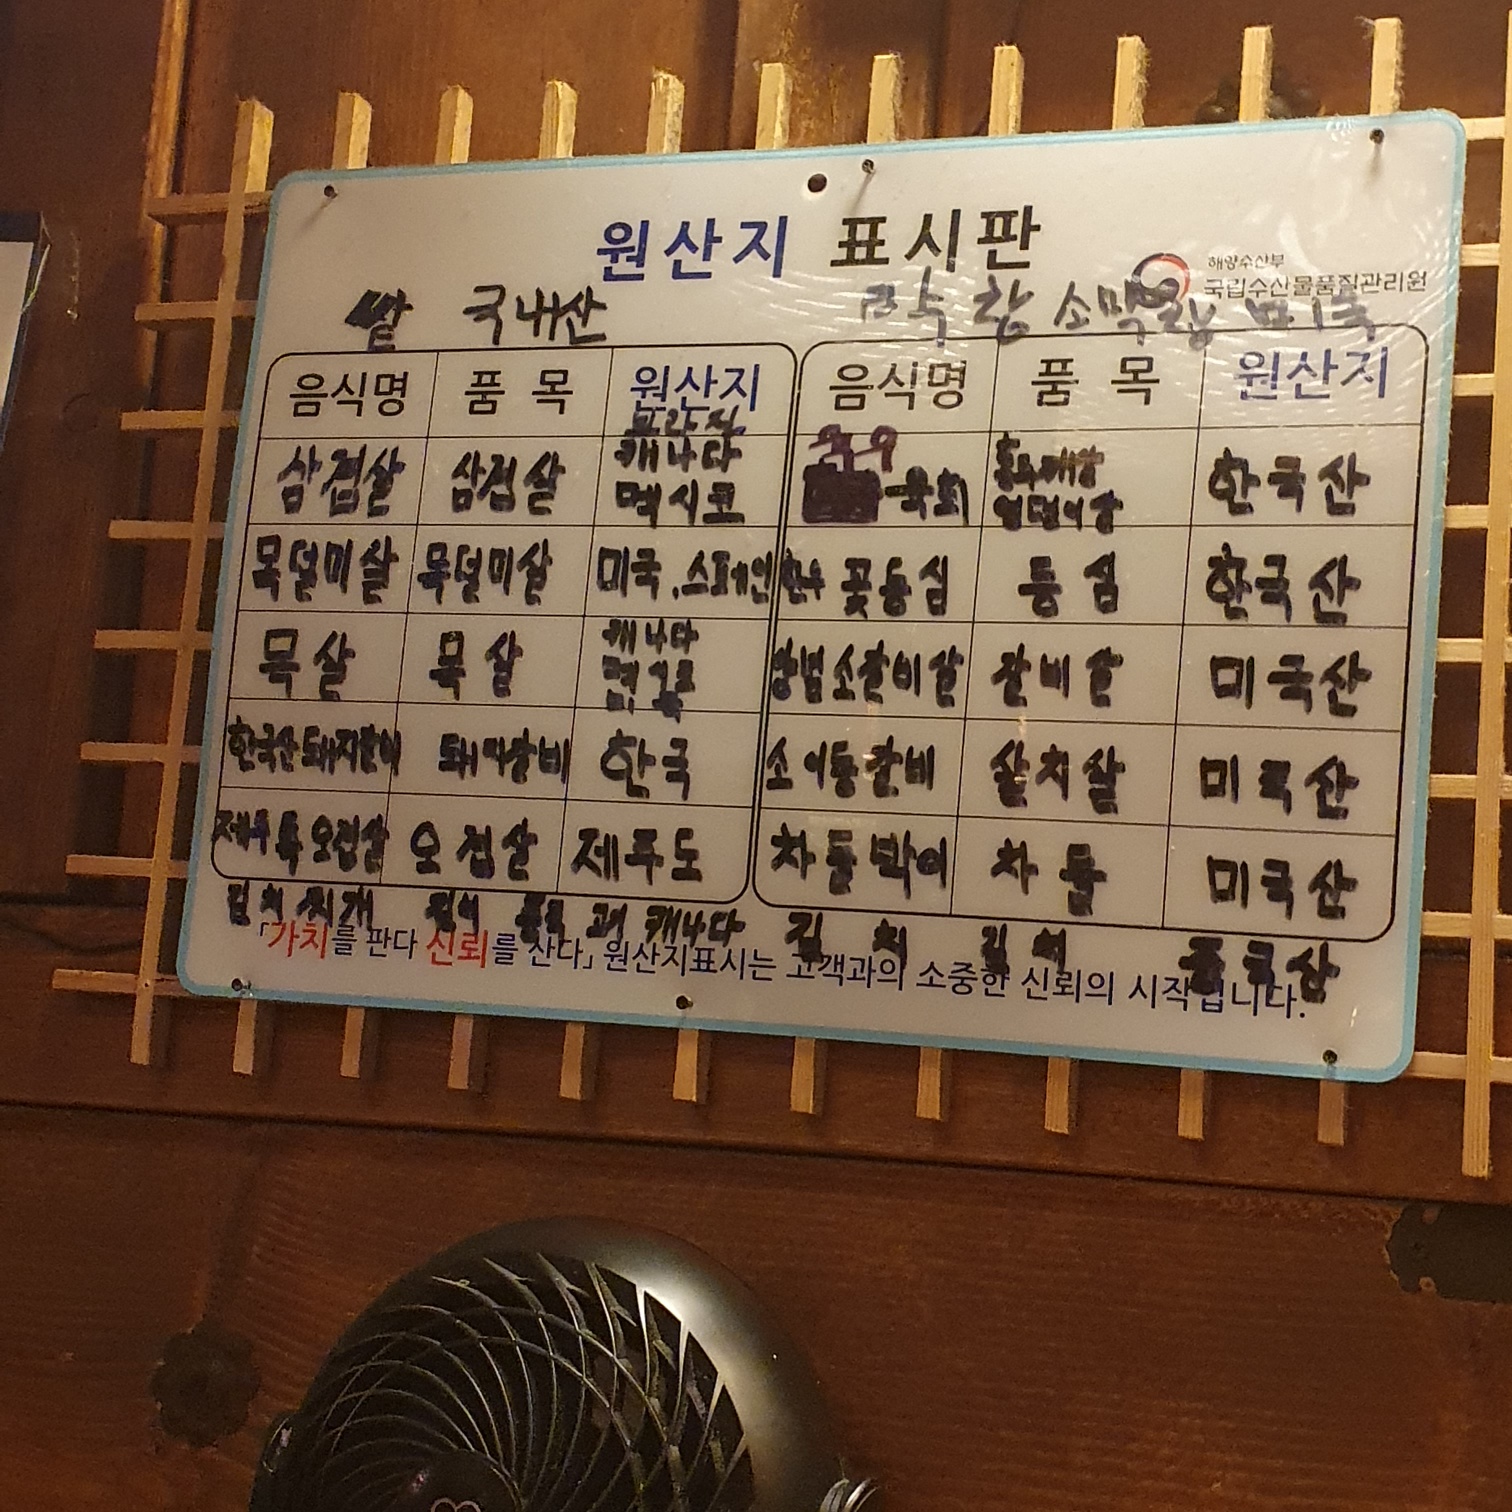 원산지 표시판
해양수산부
국립수산물품질관리원
쌀 국내산
막창 소막창 미국
음식명 품 목 원산지
삼겹살 삼겹살 캐나다 멕시코
목덜미살 목덜미살 미국.스페인
목살 목살 캐나다
한국산돼지갈비 돼지갈비 한국
제주흑오겹살 오겹살 제주도
김치찌개 김치 중국 고기 캐나다
음식명 품 목 원산지
한우 육회 한국산
한우 꽃등심 등심 한국산
양념소갈비살 갈비살 미국산
소이동갈비 살치살 미국산
차돌박이 차돌 미국산
김치 김치 중국산
「가치를 판다 신뢰를 산다」 원산지표시는 고객과의 소중한 신뢰의 시작입니다.